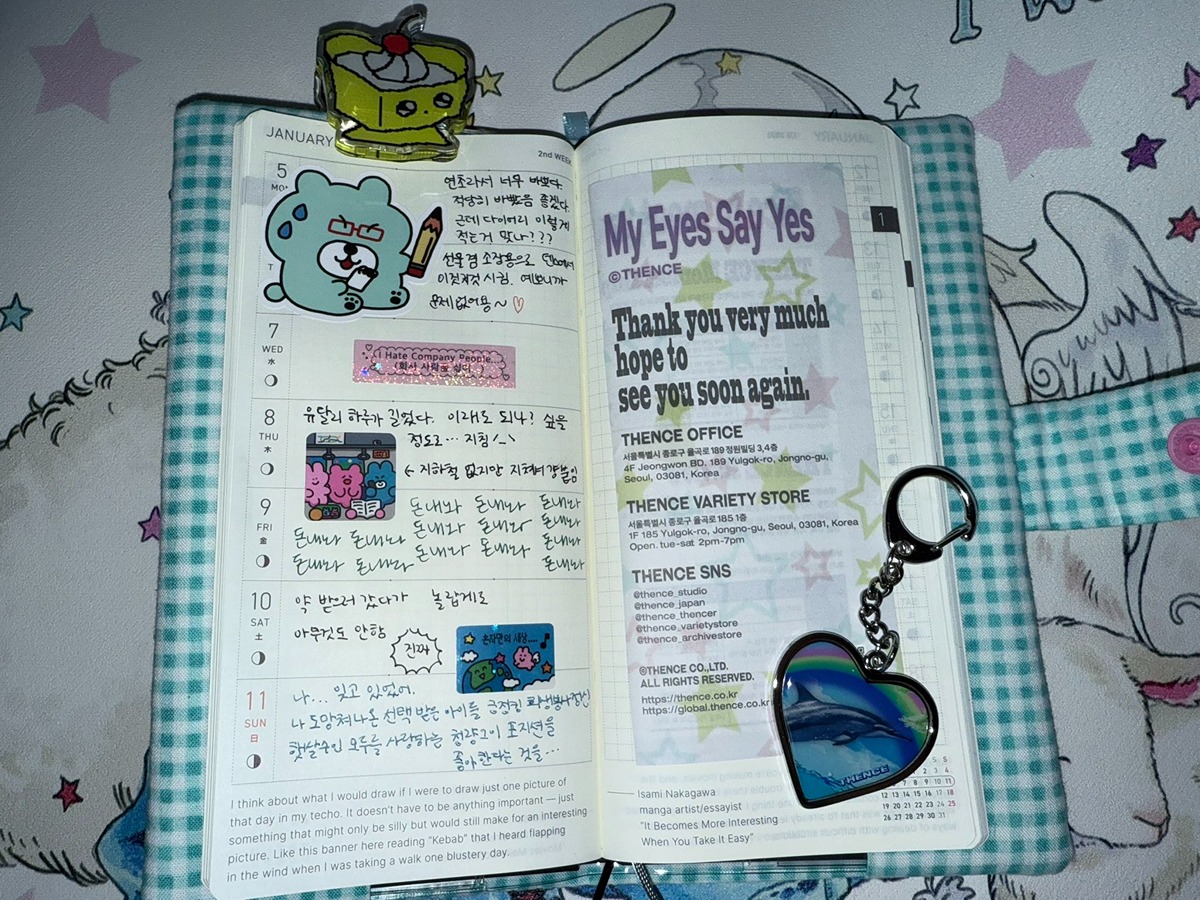 JANUARY
2nd WEEK
5
MO
연초라서 너무 바쁘다.
적당히 바빴음 좋겠다.
근데 다이어리 이렇게
적는거 맞나???
선물 겸 소장용으로
이것저것 시킴. 예쁘니까
문제없어용~ ♡
T
7
WED
水
I Hate Company People...
(회사 사람들 싫어...)
8
THU
木
유달리 하루가 길었다. 이래도 되나? 싶을
정도로... 지침
← 지하철 없지만 지쳐서
9
FRI
金
돈내놔 돈내놔 돈내놔
돈내놔 돈내놔 돈내놔 돈내놔 돈내놔
돈내놔 돈내놔 돈내놔 돈내놔 돈내놔
10
SAT
土
약 받으러 갔다가 놀랍게도
아무것도 안함
진짜
혼자만의 세상....♪
11
SUN
日
나... 잊고 있었어.
나 도망쳐나온 선택 받은 아이들 긍정킹
햇살주인 모두를 사랑하는 청량그이 포지션을
좋아한다는 것을...
I think about what I would draw if I were to draw just one picture of
that day in my techo. It doesn't have to be anything important — just
something that might only be silly but would still make for an interesting
picture. Like this banner here reading "Kebab" that I heard flapping
in the wind when I was taking a walk one blustery day.
1
My Eyes Say Yes
©THENCE
Thank you very much
hope to
see you soon again.
THENCE OFFICE
서울특별시 종로구 율곡로 189 정원빌딩 3,4층
4F Jeongwon BD. 189 Yulgok-ro, Jongno-gu,
Seoul, 03081, Korea
THENCE VARIETY STORE
서울특별시 종로구 율곡로185 1층
1F 185 Yulgok-ro, Jongno-gu, Seoul, 03081, Korea
Open. tue-sat 2pm-7pm
THENCE SNS
@thence_studio
@thence_japan
@thence_thencer
@thence_varietystore
@thence_archivestore
©THENCE CO.,LTD.
ALL RIGHTS RESERVED.
https://thence.co.kr
https://global.thence.co.kr
THENCE
Isami Nakagawa
manga artist/essayist
"It Becomes More Interesting
When You Take It Easy"
2 3 4
9 10 11
12 13 14 15 16 17 18
19 20 21 22 23 24 25
26 27 28 29 30 31